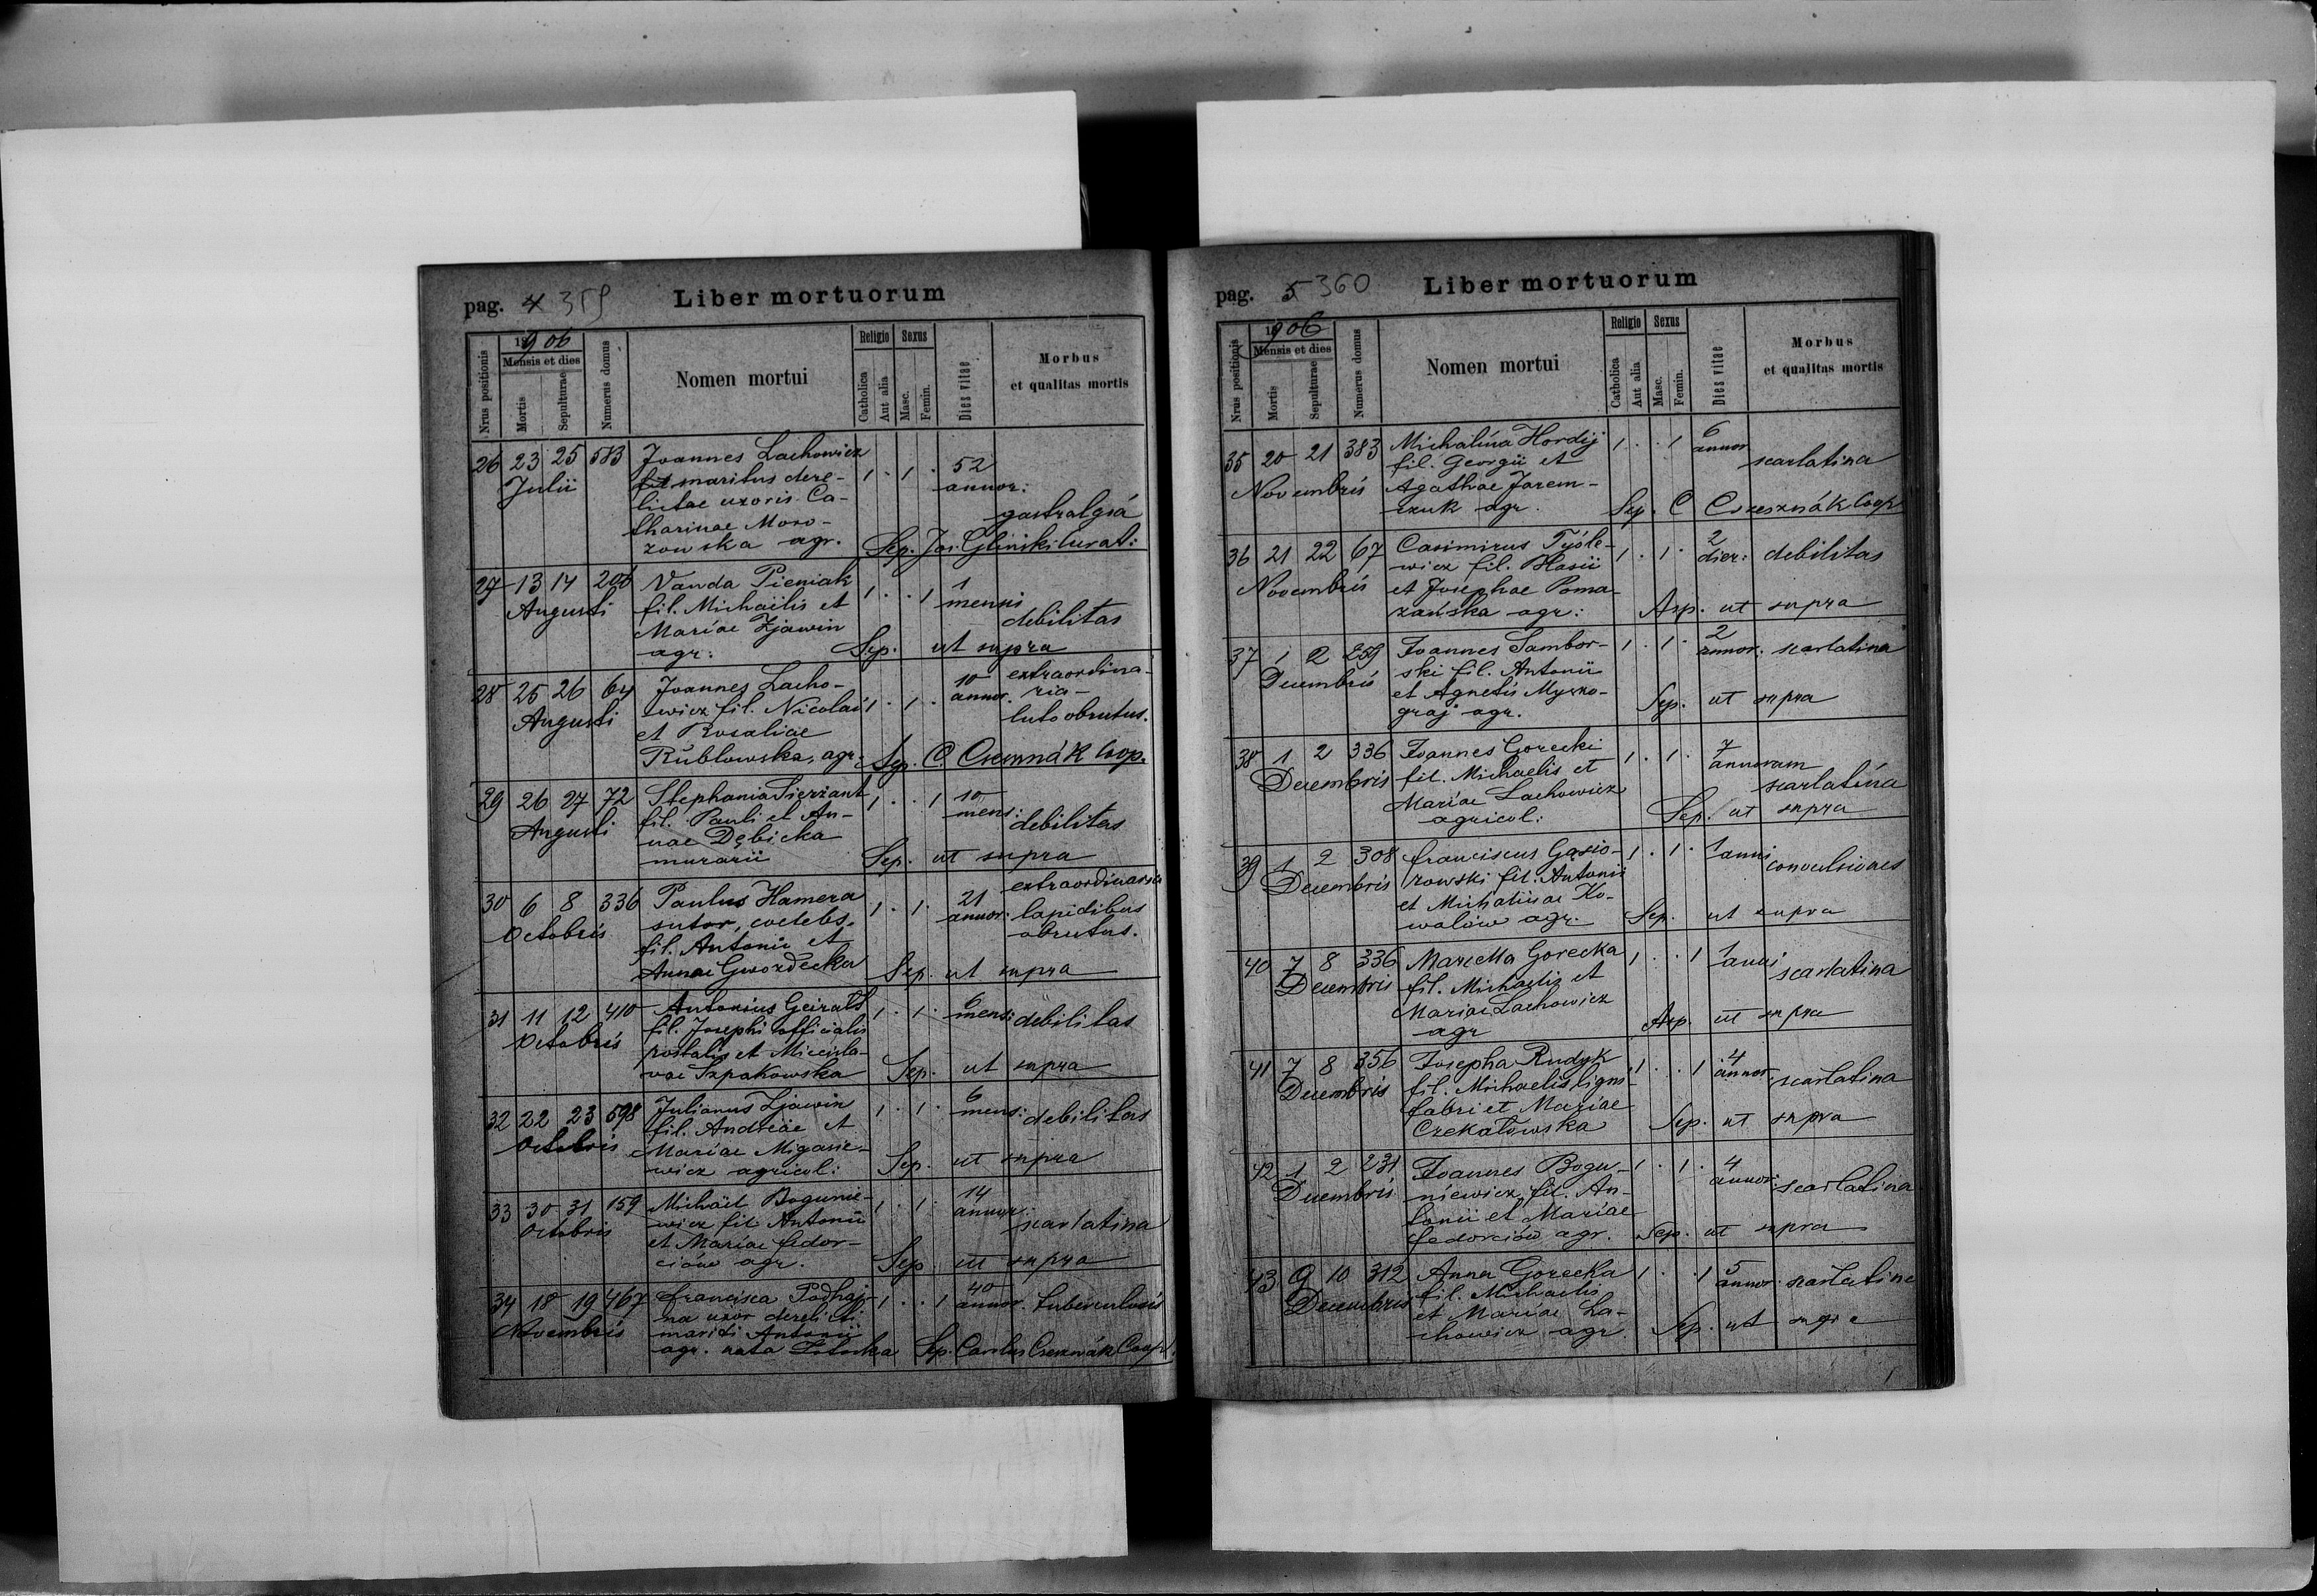 pag. 4 359 Liber mortuorum
Nrus positionis
1906
Mensis et dies
Mortis
Sepulturae
Numerus domus
Nomen mortui
Religio
Catholica
Aut alia
Sexus
Masc.
Femin.
Dies vitae
Morbus
et qualitas mortis
26 23 25 583 Joannes Lachowicz 1 . 1 . 52
Julii maritus dere- annor:
lictae uxoris Ca- gastralgiá
tharinae Moro-
zowska agr. Sep. Jos. Gliński curat:
27 13 14 206 Vanda Pieniak 1 . . 1 1
Augusti fil. Michaëlis et mensis
Mariae Zjawin debilitas
agr: Sep. ut supra
28 25 26 64 Joannes Lacho- 1 . 1 . 10 extraordina-
Augusti wicz fil. Nicolai annor. ria-
et Rosaliae luto obrutus.
Rublowska, agr. Sep. C. Csesznák Coop.
29 26 27 72 Stephania Sierżant 1 . . 1 10
Augusti fil. Pauli et An- mens:
nae Dębicka debilitas
murarii Sep. ut supra
30 6 8 336 Paulus Hamera 1 . 1 . 21 extraordinaria
Octobris sutor, coelebs, annor: lapidibus
fil. Antonii et obrutus.
Annae Gwozdecka Sep. ut supra
31 11 12 410 Antonius Geirats 1 . 1 . 6
Octobris fil. Josephi officialis mens: debilitas
postalis et Miecisla-
vae Szpakowska Sep. ut supra
32 22 23 598 Julianus Zjawin 1 . 1 . 6
Octobris fil. Andreae et mens: debilitas
Mariae Migasie-
wicz agricol: Sep. ut supra
33 30 31 159 Michaël Bogunie- 1 . 1 . 14
Octobris wicz fil Antonii annor:
et Mariae Fedor- scarlatina
ciów agr. Sep. ut supra
34 18 19 467 Francisca Podhaj- 1 . . 1 40
Novembris na uxor derelicti annor. tuberculosis
mariti Antonii
agr. nata Sep. Carolus Csesznák Coop.
pag. 5 360 Liber mortuorum
Nrus positionis
1906
Mensis et dies
Mortis
Sepulturae
Numerus domus
Nomen mortui
Religio
Catholica
Aut alia
Sexus
Masc.
Femin.
Dies vitae
Morbus
et qualitas mortis
35 20 21 383 Michalina Hordij 1 . . 1 6
Novembris fil. Georgii et annor scarlatina
Agathae Jarem-
czuk agr. Sep. C Csesznák Coop
36 21 22 67 Casimirus Tyóle- 1 . 1 . 2
Novembris wicz fil. Blasii dier: debilitas
et Josephae Poma-
zańska agr: Sep. ut supra
37 1 2 259 Joannes Sambor- 1 . 1 . 2
Decembris ski fil. Antonii annor: scarlatina
et Agnetis Myszo-
graj agr. Sep. ut supra
38 1 2 336 Joannes Gorecki 1 . 1 . 7
Decembris fil. Michaelis et annorum
Mariae Lachowicz scarlatina
agricol: Sep. ut supra
39 1 2 308 Franciscus Gąsio- 1 . 1 . 1 anni
Decembris rowski fil. Antonii convulsiones
et Michalinae Ko-
walów agr. Sep. ut supra
40 7 8 336 Marcella Gorecka 1 . . 1 1 anni
Decembris fil. Michaelis et scarlatina
Mariae Lachowicz
agr Sep. ut supra
41 7 8 356 Josepha Rudyk 1 . . 1 4
Decembris fil. Michaelis ligni- annor scarlatina
fabri et Mariae
Czekałowska Sep. ut supra
42 1 2 231 Joannes Bogu- 1 . 1 . 4
Decembris niewicz fil. An- annor: scarlatina
tonii et Mariae
Fedorciów agr. Sep. ut supra
43 9 10 312 Anna Gorecka 1 . . 1 5
Decembris fil. Michaelis annor. scarlatina
et Mariae La-
chowicz agr. Sep. ut supra